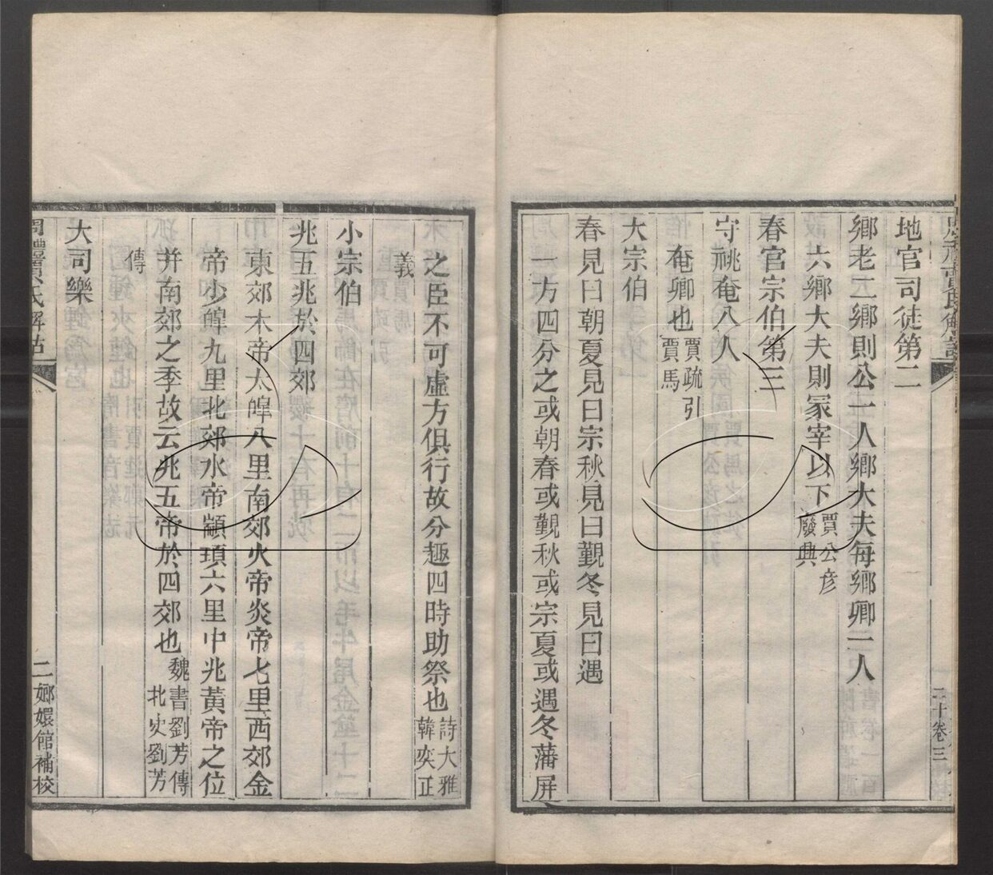 地官司徒第二
鄉老二鄉則公一人鄉大夫每鄉卿一人
六鄉大夫則冢宰以下賈公彥
廢興
春官宗伯第三
守祧奄八人
奄卿也賈疏引
賈馬
大宗伯
春見曰朝夏見曰宗秋見曰覲冬見曰遇
一方四分之或朝春或覲秋或宗夏或遇冬藩屏
之臣不可虛方俱行故分趣四時助祭也詩大雅
韓奕正
義
小宗伯
兆五兆於四郊
東郊木帝太皞八里南郊火帝炎帝七里西郊金
帝少皞九里北郊水帝顓頊六里中兆黃帝之位
并南郊之季故云兆五帝於四郊也魏書劉芳傳
北史劉芳
傳
大司樂
周禮賈氏解詁
二 嫏嬛館補校